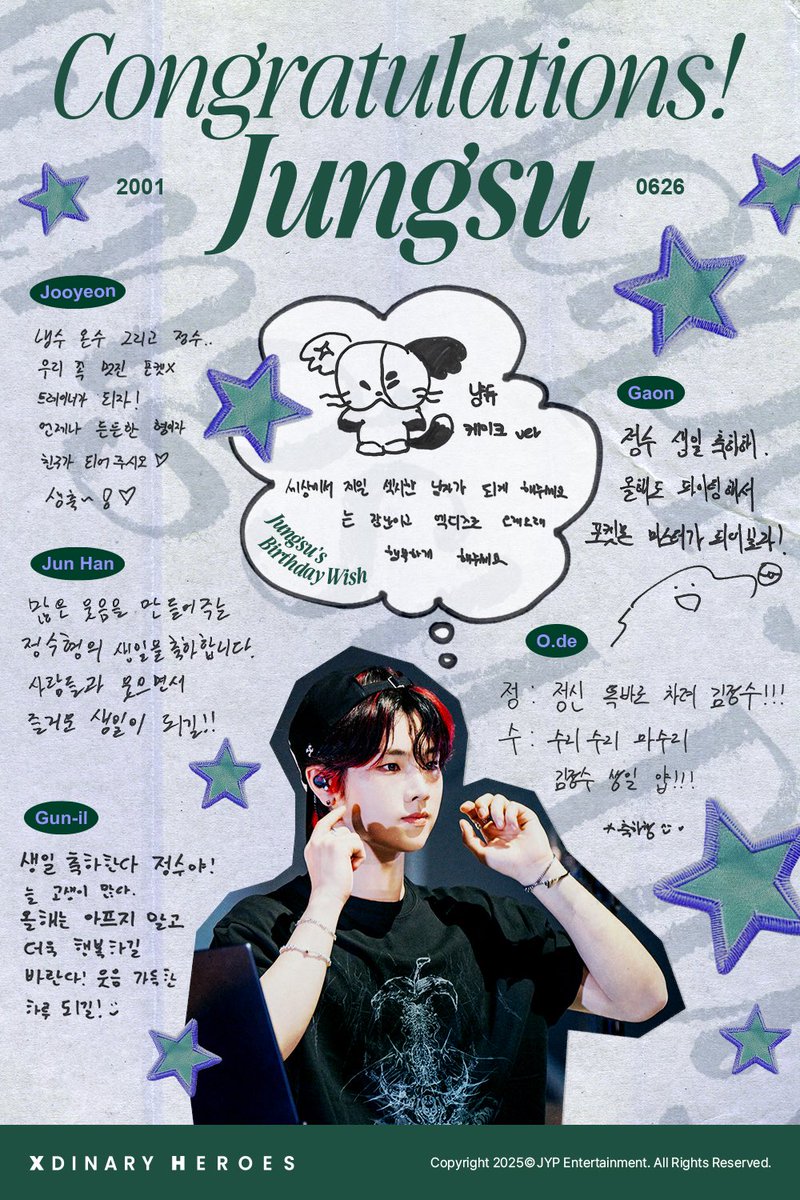 Congratulations!
Jungsu
2001
0626
Jooyeon
냉수 온수 그리고 정수..
우리 꼭 멋진 포켓X
트레이너가 되자!
언제나 든든한 형이자
친구가 되어 주시오 ♡
생축~ ♡
냥뮤
케이크 ver
세상에서 제일 섹시한 남자가 되게 해주세요
는 장난이고 엑디즈로 오래오래
행복하게 해주세요
Jungsu's
Birthday Wish
Gaon
정수 생일 축하해.
올해도 파이팅해서
포켓몬 마스터가 되어보자!
Jun Han
많은 웃음을 만들어주는
정수형의 생일을 축하합니다.
사람들과 웃으면서
즐거운 생일이 되길!!
O.de
정: 정신 똑바로 차려 김정수!!!
수: 수리수리 마수리
김정수 생일 얍!!!
Gun-il
생일 축하한다 정수야!
늘 고생이 많다.
올해는 아프지 말고
더욱 행복하길
바란다! 웃음 가득한
하루 되길! :)
XDINARY HEROES
Copyright 2025© JYP Entertainment. All Rights Reserved.